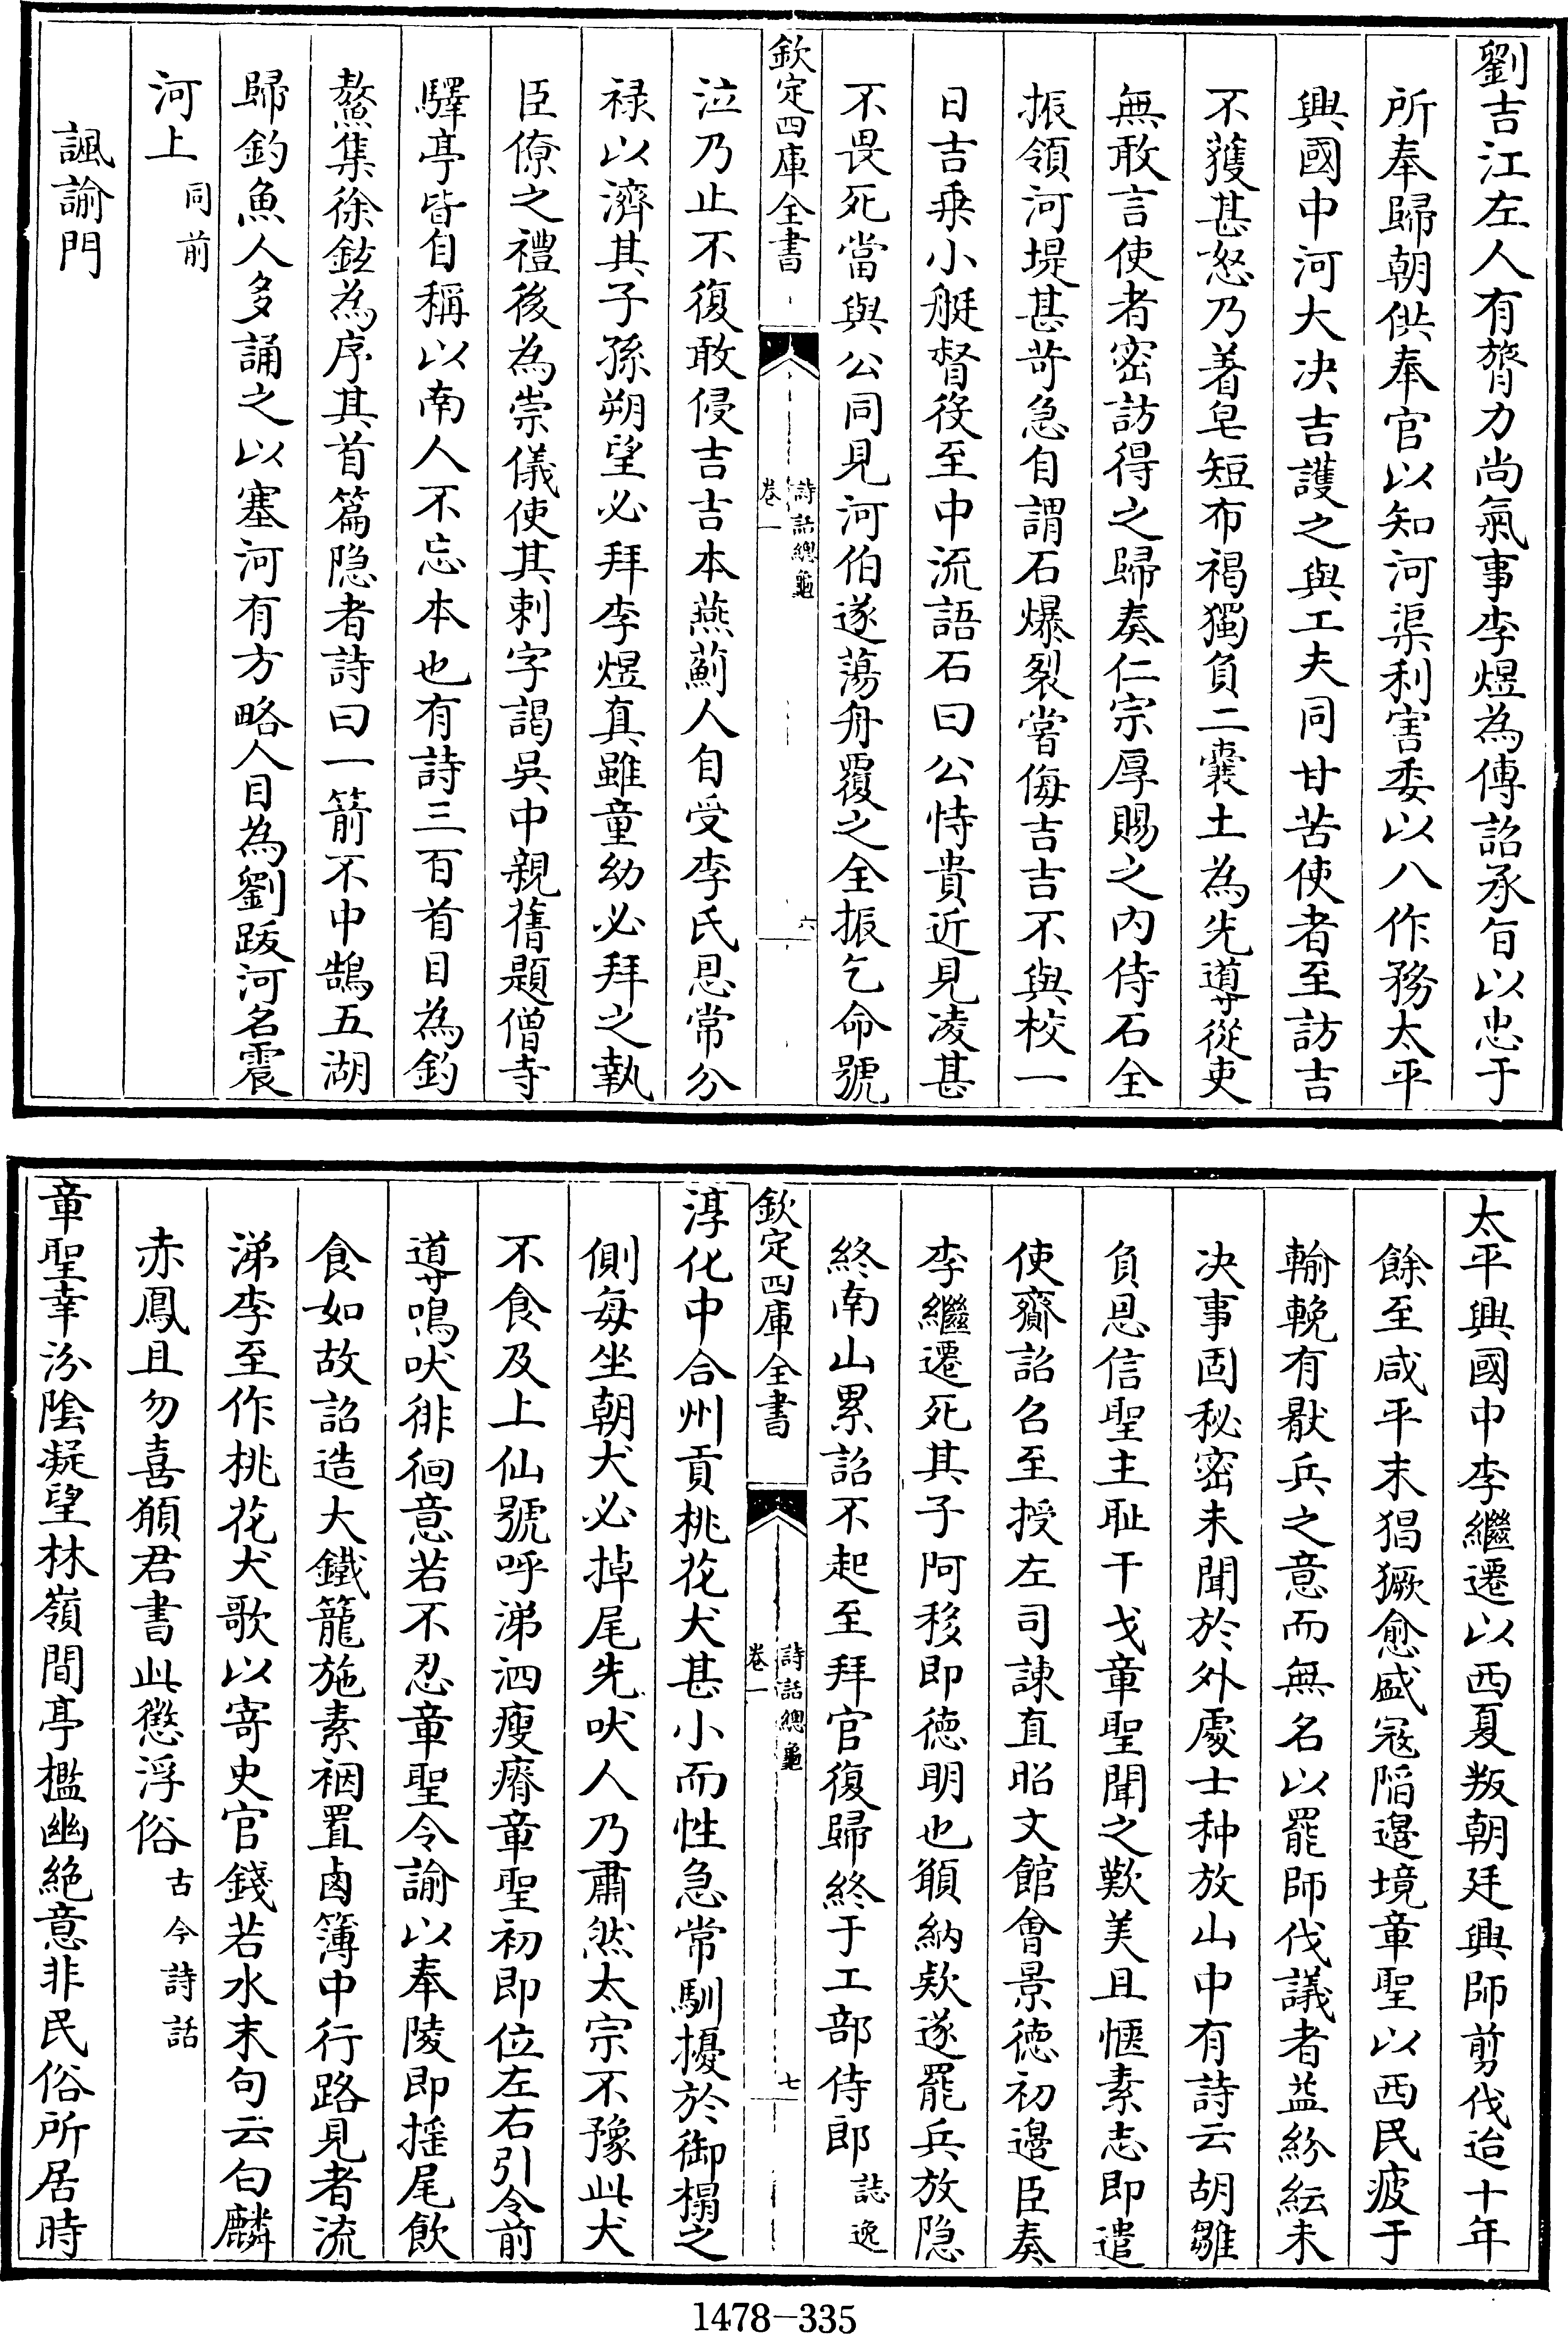 劉吉江左人有膂力尚氣事李煜為傳詔承旨以忠于
所奉歸朝供奉官以知河渠利害委以八作務太平
興國中河大决吉護之與工夫同甘苦使者至訪吉
不獲甚怒乃着皂短布褐獨負二囊土為先導從吏
無敢言使者密訪得之歸奏仁宗厚賜之内侍石全
振領河堤甚苛急自謂石爆裂嘗侮吉吉不與校一
日吉乗小艇督役至中流語石曰公恃貴近見凌甚
不畏死當與公同見河伯遂蕩舟覆之全振乞命號
欽定四庫全書
詩話總龜
卷一
六
泣乃止不復敢侵吉吉本燕薊人自受李氏恩常分
禄以濟其子孫朔望必拜李煜真雖童幼必拜之執
臣僚之禮後為崇儀使其刺字謁吳中親舊題僧寺
驛亭皆自稱以南人不忘本也有詩三百首目為釣
鰲集徐鉉為序其首篇隐者詩曰一箭不中鵠五湖
歸釣魚人多誦之以塞河有方略人目為劉跋河名震
河上同前
諷諭門
太平興國中李繼遷以西夏叛朝廷興師剪伐迨十年
餘至咸平末猖獗愈盛冦陷邉境章聖以西民疲于
輸輓有厭兵之意而無名以罷師伐議者益紛紜未
决事固秘密未聞於外處士种放山中有詩云胡雛
負恩信聖主耻干戈章聖聞之歎美且愜素志即遣
使齎詔名至授左司諫直昭文館會景徳初邉臣奏
李繼遷死其子阿移即徳明也願納欵遂罷兵放隐
終南山累詔不起至拜官復歸終于工部侍郎誌逸
欽定四庫全書
詩話總龜
卷一
七
淳化中合州貢桃花犬甚小而性急常馴擾於御榻之
側每坐朝犬必掉尾先吠人乃肅然太宗不豫此犬
不食及上仙號呼涕泗瘦瘠章聖初即位左右引令前
導鳴吠徘徊意若不忍章聖令諭以奉陵即摇尾飲
食如故詔造大鐵籠施素裀置鹵簿中行路見者流
涕李至作桃花犬歌以寄史官錢若水末句云白麟
赤鳳且勿喜願君書此懲浮俗古今詩話
章聖幸汾陰凝望林嶺間亭檻幽絶意非民俗所居時
1478-335